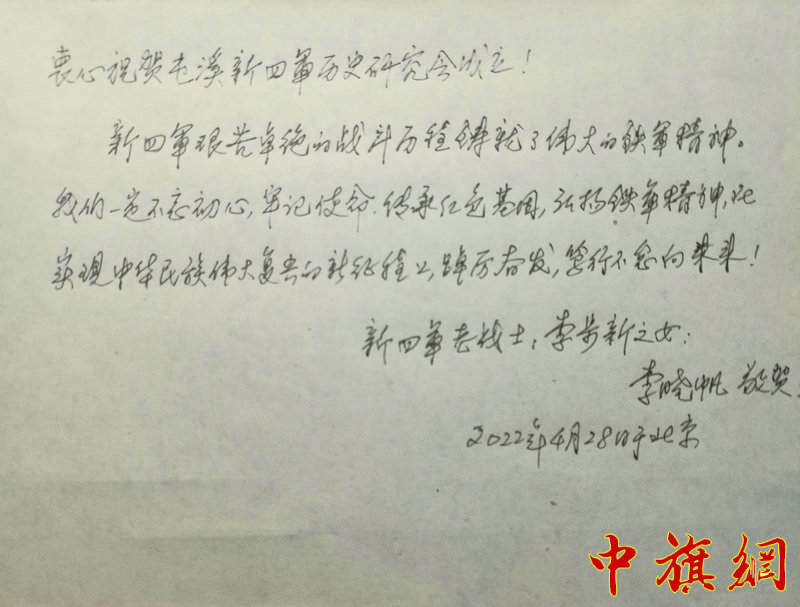 衷心祝贺屯溪新四軍历史研究会成立！
新四軍艰苦卓绝的战斗历程铸就了伟大的铁軍精神。
我们一定不忘初心，牢记使命.传承红色基因，弘扬铁軍精神，在
实现中华民族伟大复兴的新征程上，踔厉奋发，笃行不怠向未来！
新四軍老战士：李步新之女：
李晓帆 敬贺.
2022年4月28日于北京
中旗網